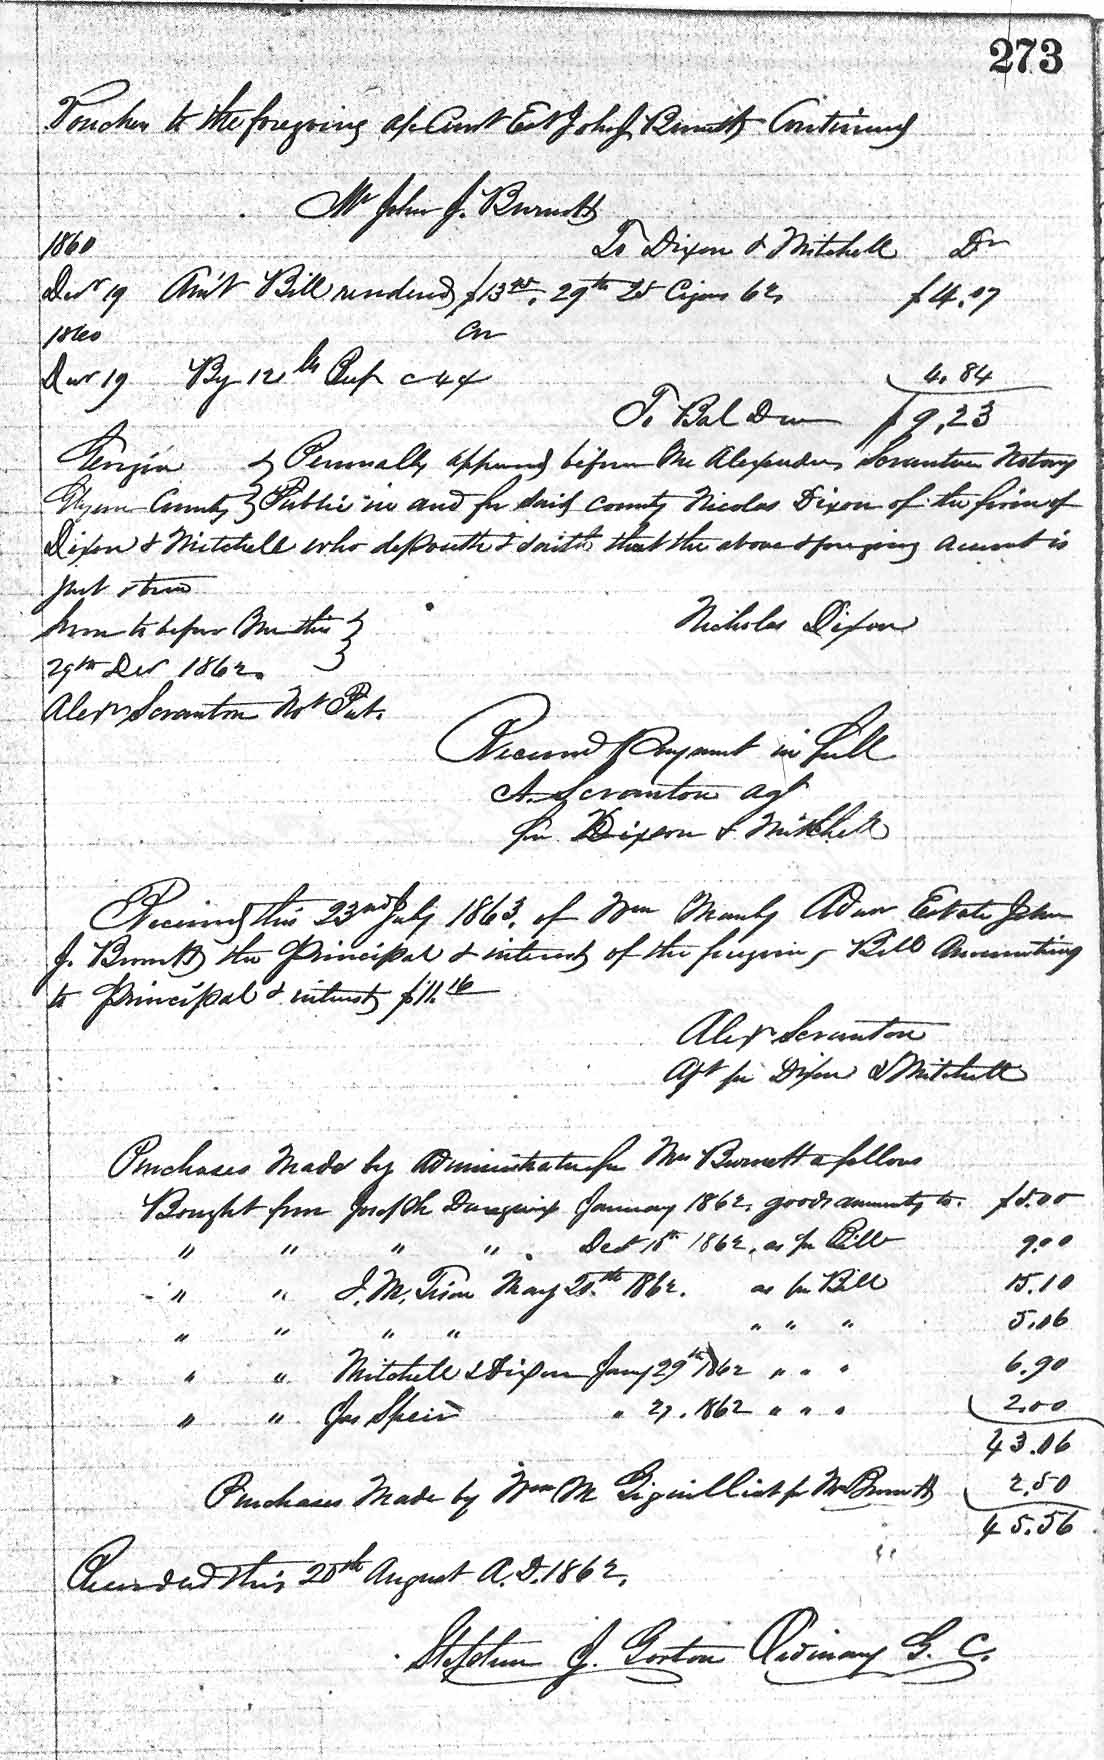 273
Voucher to the foregoing a/c Est John J. Burnett Continued
Mr John J. Burnett
1860 To Dixon & Mitchell Dr
Decr 19 Am't Bill rendered $13 29th Cigars $14.07
1860 Cr
Decr 19 By 121 lbs 4.84
To Bal Due $9.23
Georgia } Personally appeared before me Alexander Scranton Notary
Glynn County } Public in and for said county Nicolas Dixon of the firm of
Dixon & Mitchell who deposeth & saith that the above & foregoing account is
just & true
Sworn to before me this }
29th Decr 1862. } Nicholas Dixon
Alexr Scranton Not Pub.
Received Payment in full
A. Scranton agt
for Dixon & Mitchell
Received this 23rd July 1863. of Wm Manly Admr Estate John
J. Burnett the Principal & interest of the foregoing Bill Amounting
to Principal & interest $11.16
Alexr Scranton
Agt for Dixon & Mitchell
Purchases made by Administrator for Mrs Burnett as follows
Bought from Joseph January 1862, goods amounting to. $5.00
" " " " Dect 15th 1862, as per Bill 9.00
" " J. M. Tison May 20th 1862. as per Bill 15.10
" " " " " " " 5.06
" " Mitchell & Dixon Jany 29th 1862 " " " 6.90
" " Jas Speir " 27. 1862 " " " 2.00
43.06
Purchases Made by Wm M Gignilliat for Mrs Burnett 2.50
45.56
Recorded this 20th August A.D. 1862,
Stephen J. Gorton Ordinary G. C.